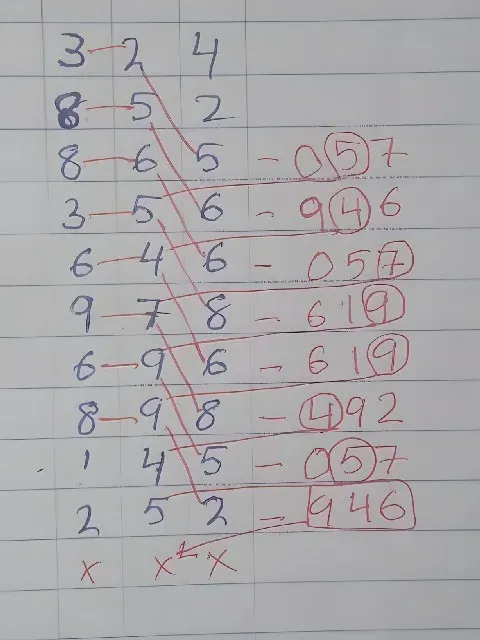 3 - 2 4
8 - 5 2
8 - 6 5 - 057
3 - 5 6 - 946
6 - 4 6 - 057
9 - 7 8 - 619
6 - 9 6 - 619
8 - 9 8 - 492
1 4 5 - 057
2 5 2 - 946
x x x